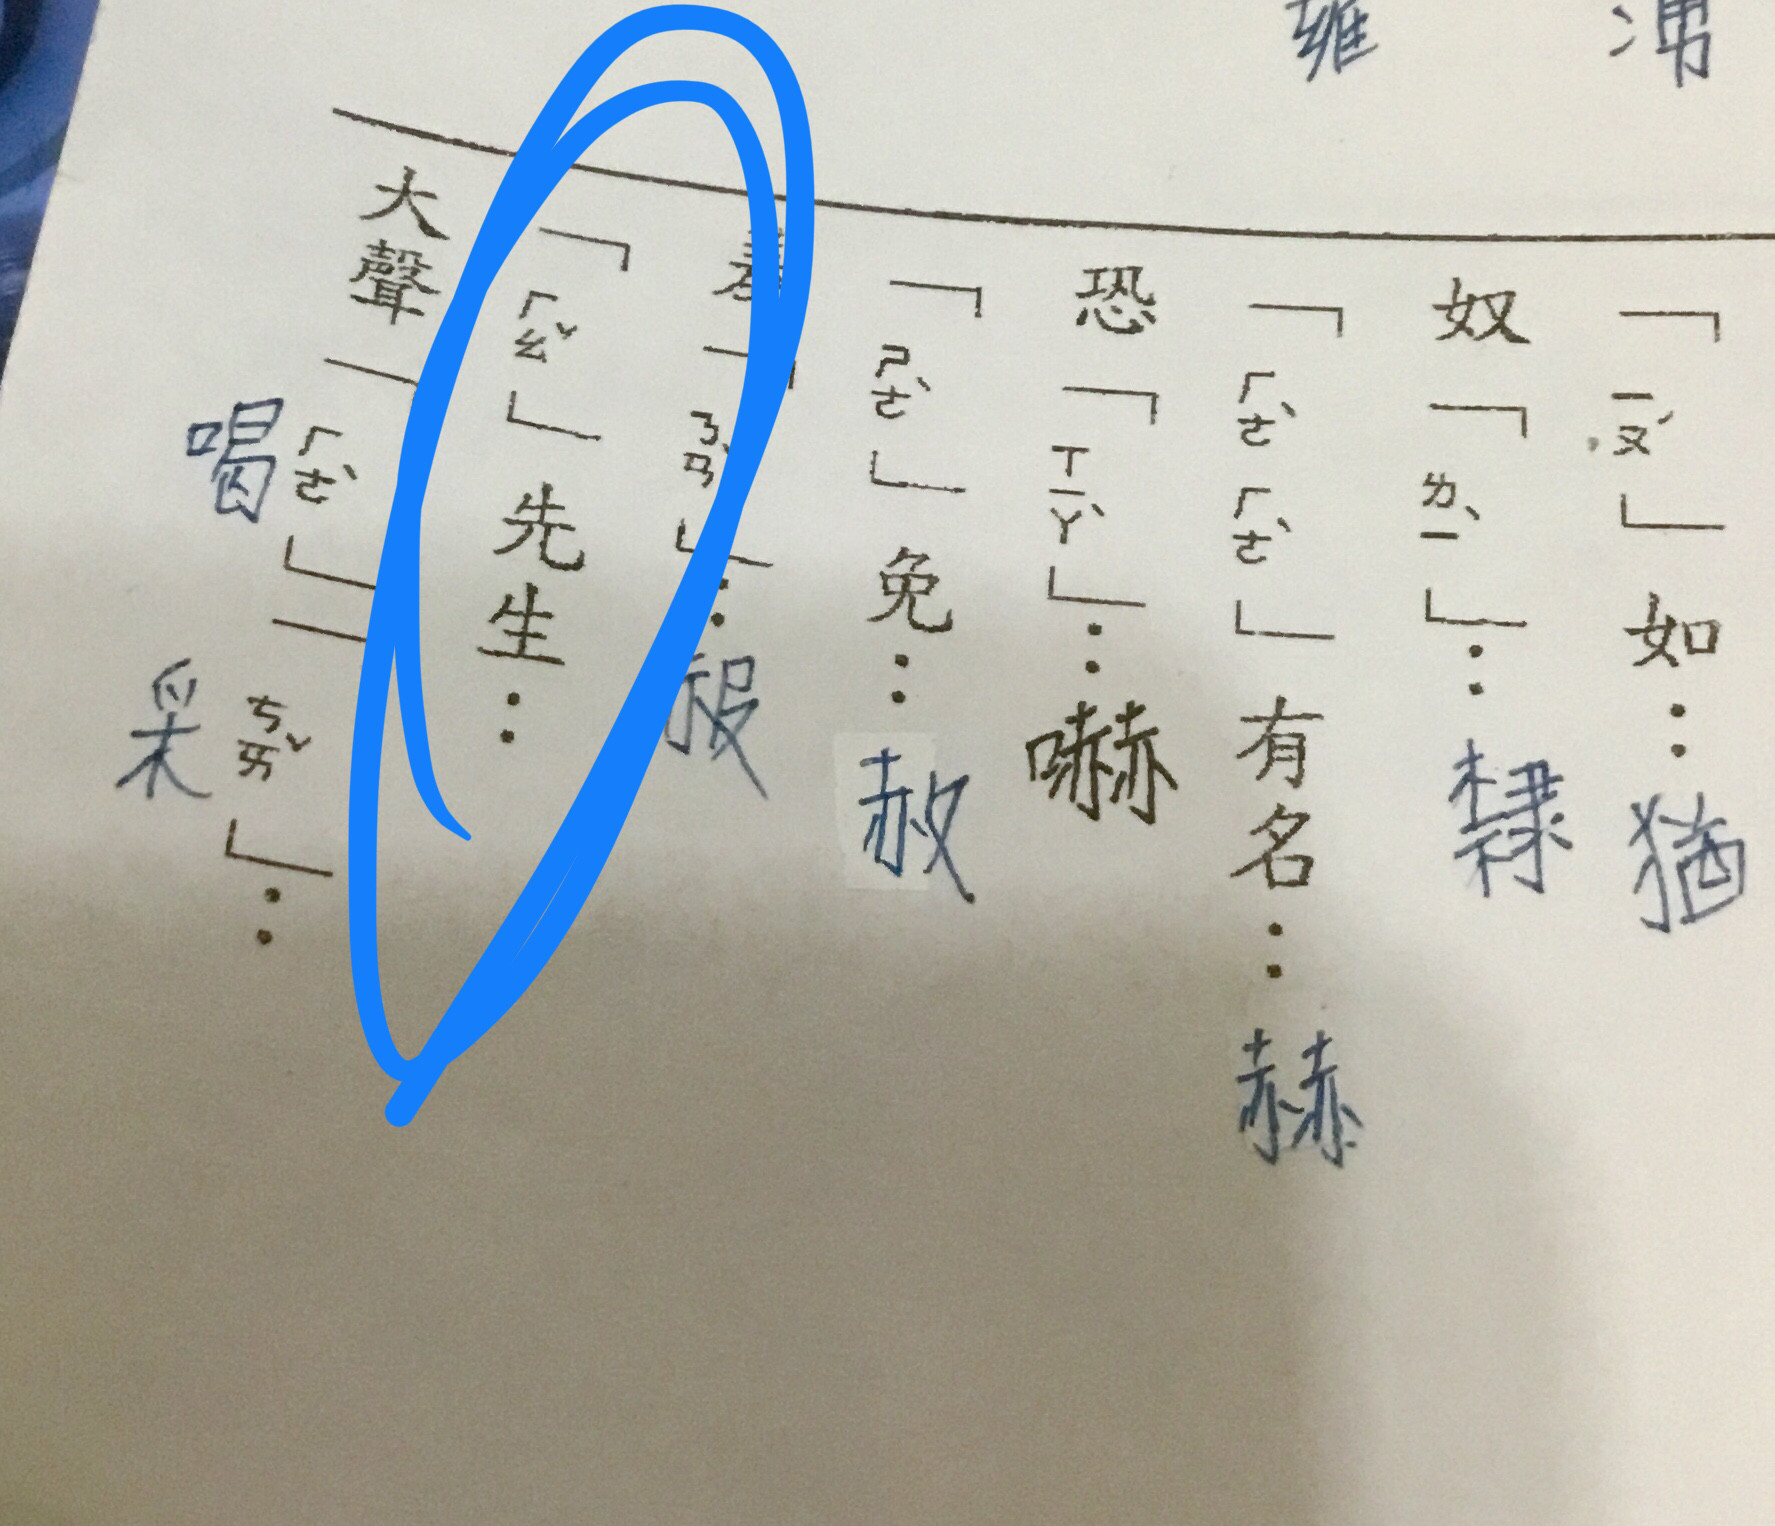 「ㄧㄡˊ」如：猶
奴「ㄌㄧˋ」：隸
「ㄏㄜˋㄏㄜˋ」有名：赫
恐「ㄒㄧㄚˋ」：嚇
「ㄕㄜˋ」免：赦
羞「ㄋㄢˇ」：赧
「ㄏㄠˇ」先生：
大聲「ㄏㄜˋ」「ㄘㄞˇ」：喝采